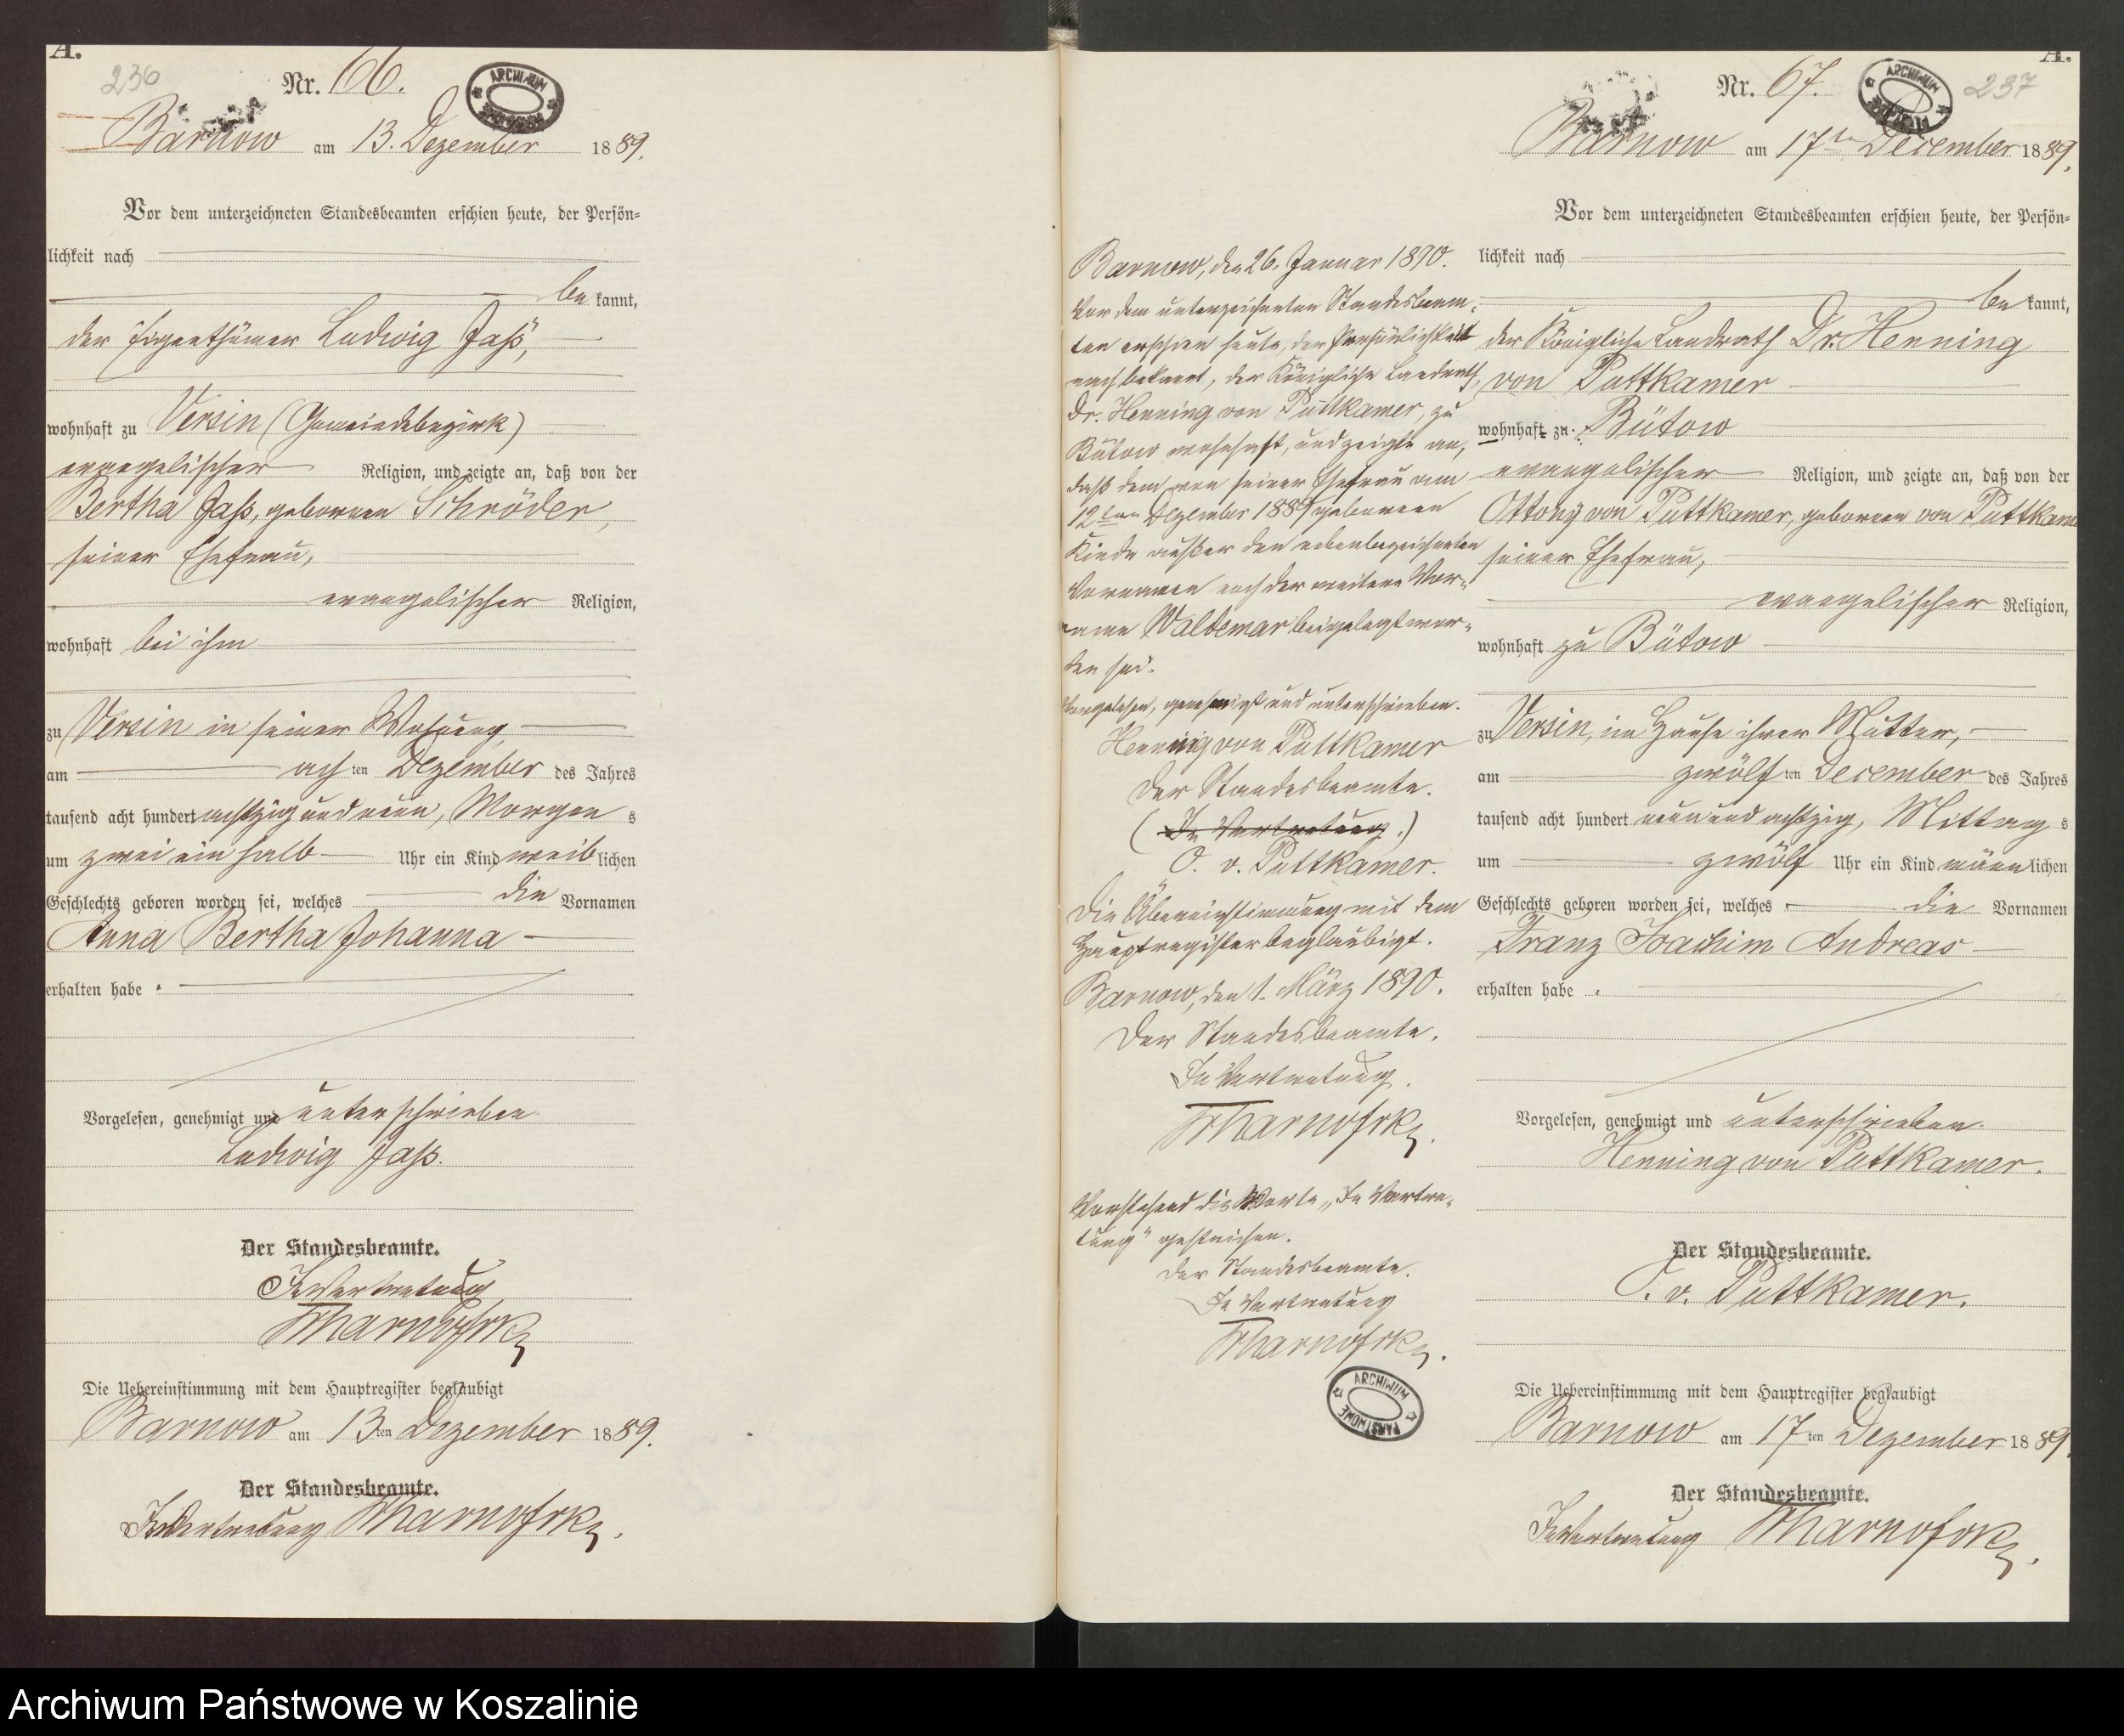 A.
236
Nr. 66.
ARCHIWUM
Barnow am 13. Dezember 1889.
Vor dem unterzeichneten Standesbeamten erschien heute, der Persön=
lichkeit nach
be kannt,
der Eigenthümer Ludwig Jaß,
wohnhaft zu Versin (Gemeindebezirk)
evangelischer Religion, und zeigte an, daß von der
Bertha Jaß, geborenen Schröder,
seiner Ehefrau,
evangelischer Religion,
wohnhaft bei ihm
zu Versin in seiner Wohnung
am ach ten Dezember des Jahres
tausend acht hundert achtzig und neun, Morgen s
um zwei ein halb Uhr ein Kind weib lichen
Geschlechts geboren worden sei, welches die Vornamen
Anna Bertha Johanna
erhalten habe.
Vorgelesen, genehmigt und unterschrieben
Ludwig Jaß.
Der Standesbeamte.
In Vertretung
Die Uebereinstimmung mit dem Hauptregister beglaubigt
Barnow am 13 ten Dezember 1889.
Der Standesbeamte.
In Vertretung
A.
Nr. 67.
ARCHIWUM
237
Barnow am 17ten December 1889.
Vor dem unterzeichneten Standesbeamten erschien heute, der Persön=
lichkeit nach
be kannt,
der Königliche Landrath Dr. Henning
von Puttkamer
wohnhaft zu Bütow
evangelischer Religion, und zeigte an, daß von der
Ottony von Puttkamer, geborenen von Puttkam
seiner Ehefrau,
evangelischer Religion,
wohnhaft zu Bütow
zu Versin, im Hause ihrer Mutter,
am zwölf ten December des Jahres
tausend acht hundert neun und achtzig, Mittag s
um zwölf Uhr ein Kind männ lichen
Geschlechts geboren worden sei, welches die Vornamen
Franz Joachim Andreas
erhalten habe.
Vorgelesen, genehmigt und unterschrieben
Henning von Puttkamer.
Der Standesbeamte.
O. v. Puttkamer.
Die Uebereinstimmung mit dem Hauptregister beglaubigt
Barnow am 17 ten Dezember 1889.
Der Standesbeamte.
In Vertretung
Barnow, den 26. Januar 1890.
Vor dem unterzeichneten Standesbeam-
ten erschien heute, der Persönlichkeit
nach bekannt, der Königliche Landrath,
Dr. Henning von Puttkamer, zu
Bütow wohnhaft, und zeigte an,
daß dem von seiner Ehefrau am
12ten Dezember 1889 geborenen
Kinde außer den nebenbezeichneten
Vornamen noch der weitere Vor-
name Waldemar beigelegt wor-
den sei.
Vorgelesen, genehmigt und unterschrieben.
Henning von Puttkamer
Der Standesbeamte.
(In Vertretung.)
O. v. Puttkamer.
Die Übereinstimmung mit dem
Hauptregister beglaubigt.
Barnow, den 1. März 1890.
Der Standesbeamte.
In Vertretung.
Vorstehend die Worte „In Vertre-
tung" gestrichen.
Der Standesbeamte.
In Vertretung
ARCHIWUM
PAŃSTWOWE
Archiwum Państwowe w Koszalinie